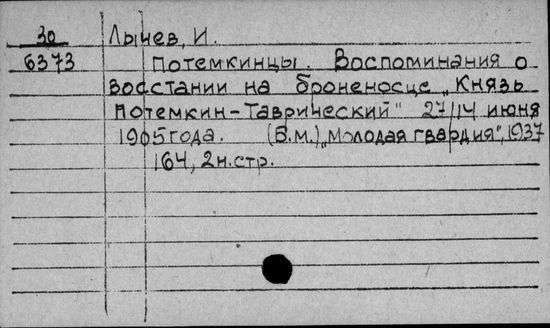 30 Лычев, И.
6373 Потемкинцы. Воспоминания о
восстании на броненосце „Князь
Потемкин-Таврический" 27/14 июня
1905 года. (Б.м.) „Молодая гвардия", 1937
164, 2 н. стр.